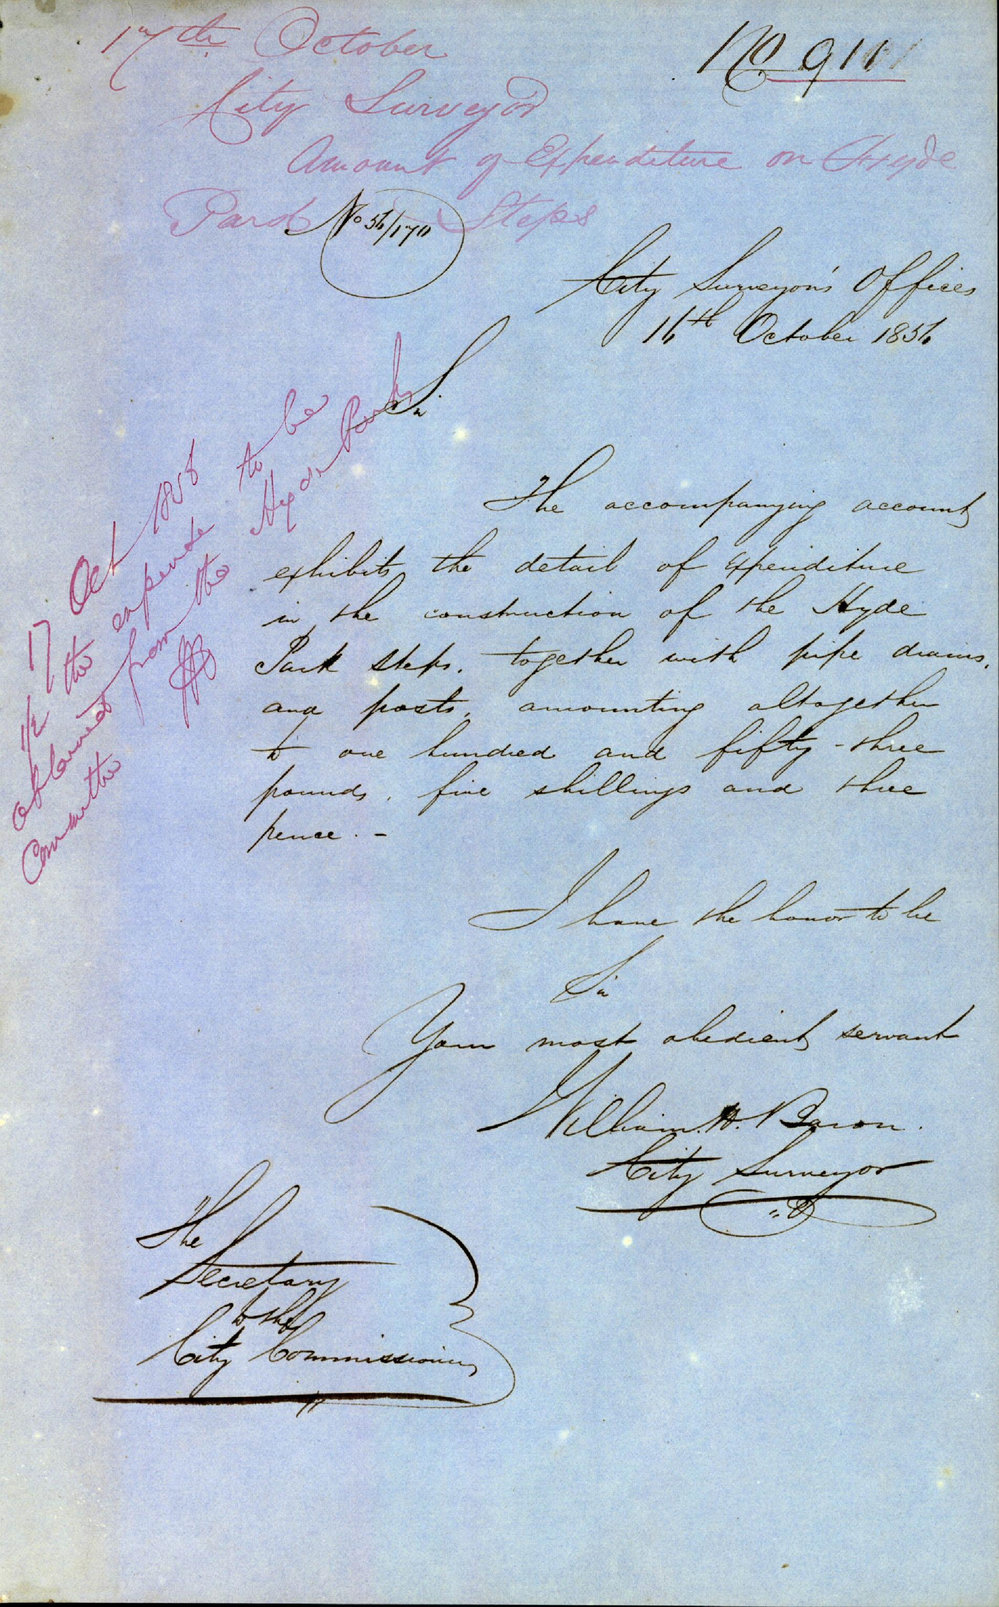 17th October
No 911
City Surveyor
Amount of Expenditure on Hyde
Park Steps
No 56/170
City Surveyor's Offices
16th October 1856
Sir
The accompanying account
exhibits the detail of expenditure
in the construction of the Hyde
Park steps, together with pipe drains,
and posts, amounting altogether
to one hundred and fifty-three
pounds, five shillings and three
pence. -
I have the honor to be
Sir
Your most obedient servant
William. H. Baron.
City Surveyor
The
Secretary
to the
City Commissioners
17 Oct 1856
1/2 the expense to be
obtained from the Hyde Park
Committee